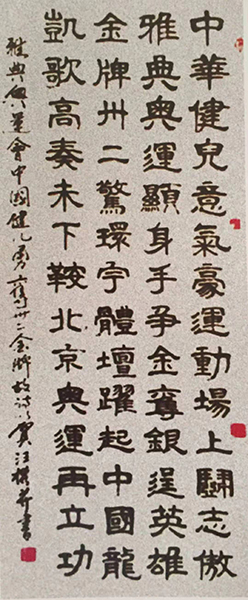 中華健兒意氣豪運動場上鬪志傲
雅典奧運顯身手爭金奪銀逞英雄
金牌卅二驚環宇體壇躍起中國龍
凱歌高奏未下鞍北京奧運再立功
雅典奧運會中國健兒勇奪卅二金牌故詩以賀汪書